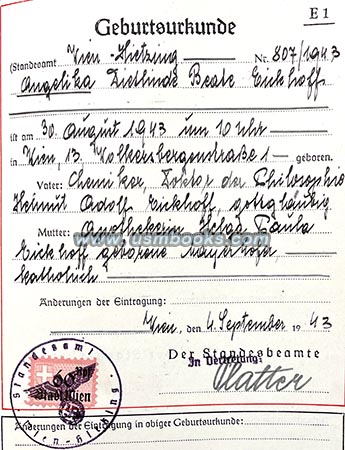 E 1
Geburtsurkunde
(Standesamt Wien-Hietzing Nr. 807/1943
Angelika Dietlinde Beate Eickhoff
ist am 30. August 1943 um 10 Uhr
in Wien, 13. Wolkersbergenstraße 1 geboren.
Vater: Chemiker, Doktor der Philosophie
Helmut Adolf Eickhoff, gottgläubig
Mutter: Apothekerin Helga Paula
Eickhoff geborene Mayerhofer
katholisch
www.usmbooks.com
Änderungen der Eintragung:
Wien, den 4. September 1943
Der Standesbeamte
In Vertretung:
Vlatter
Standesamt
60 Rpf
Stadt Wien
Wien-Hietzing
Änderungen der Eintragung in obiger Geburtsurkunde: